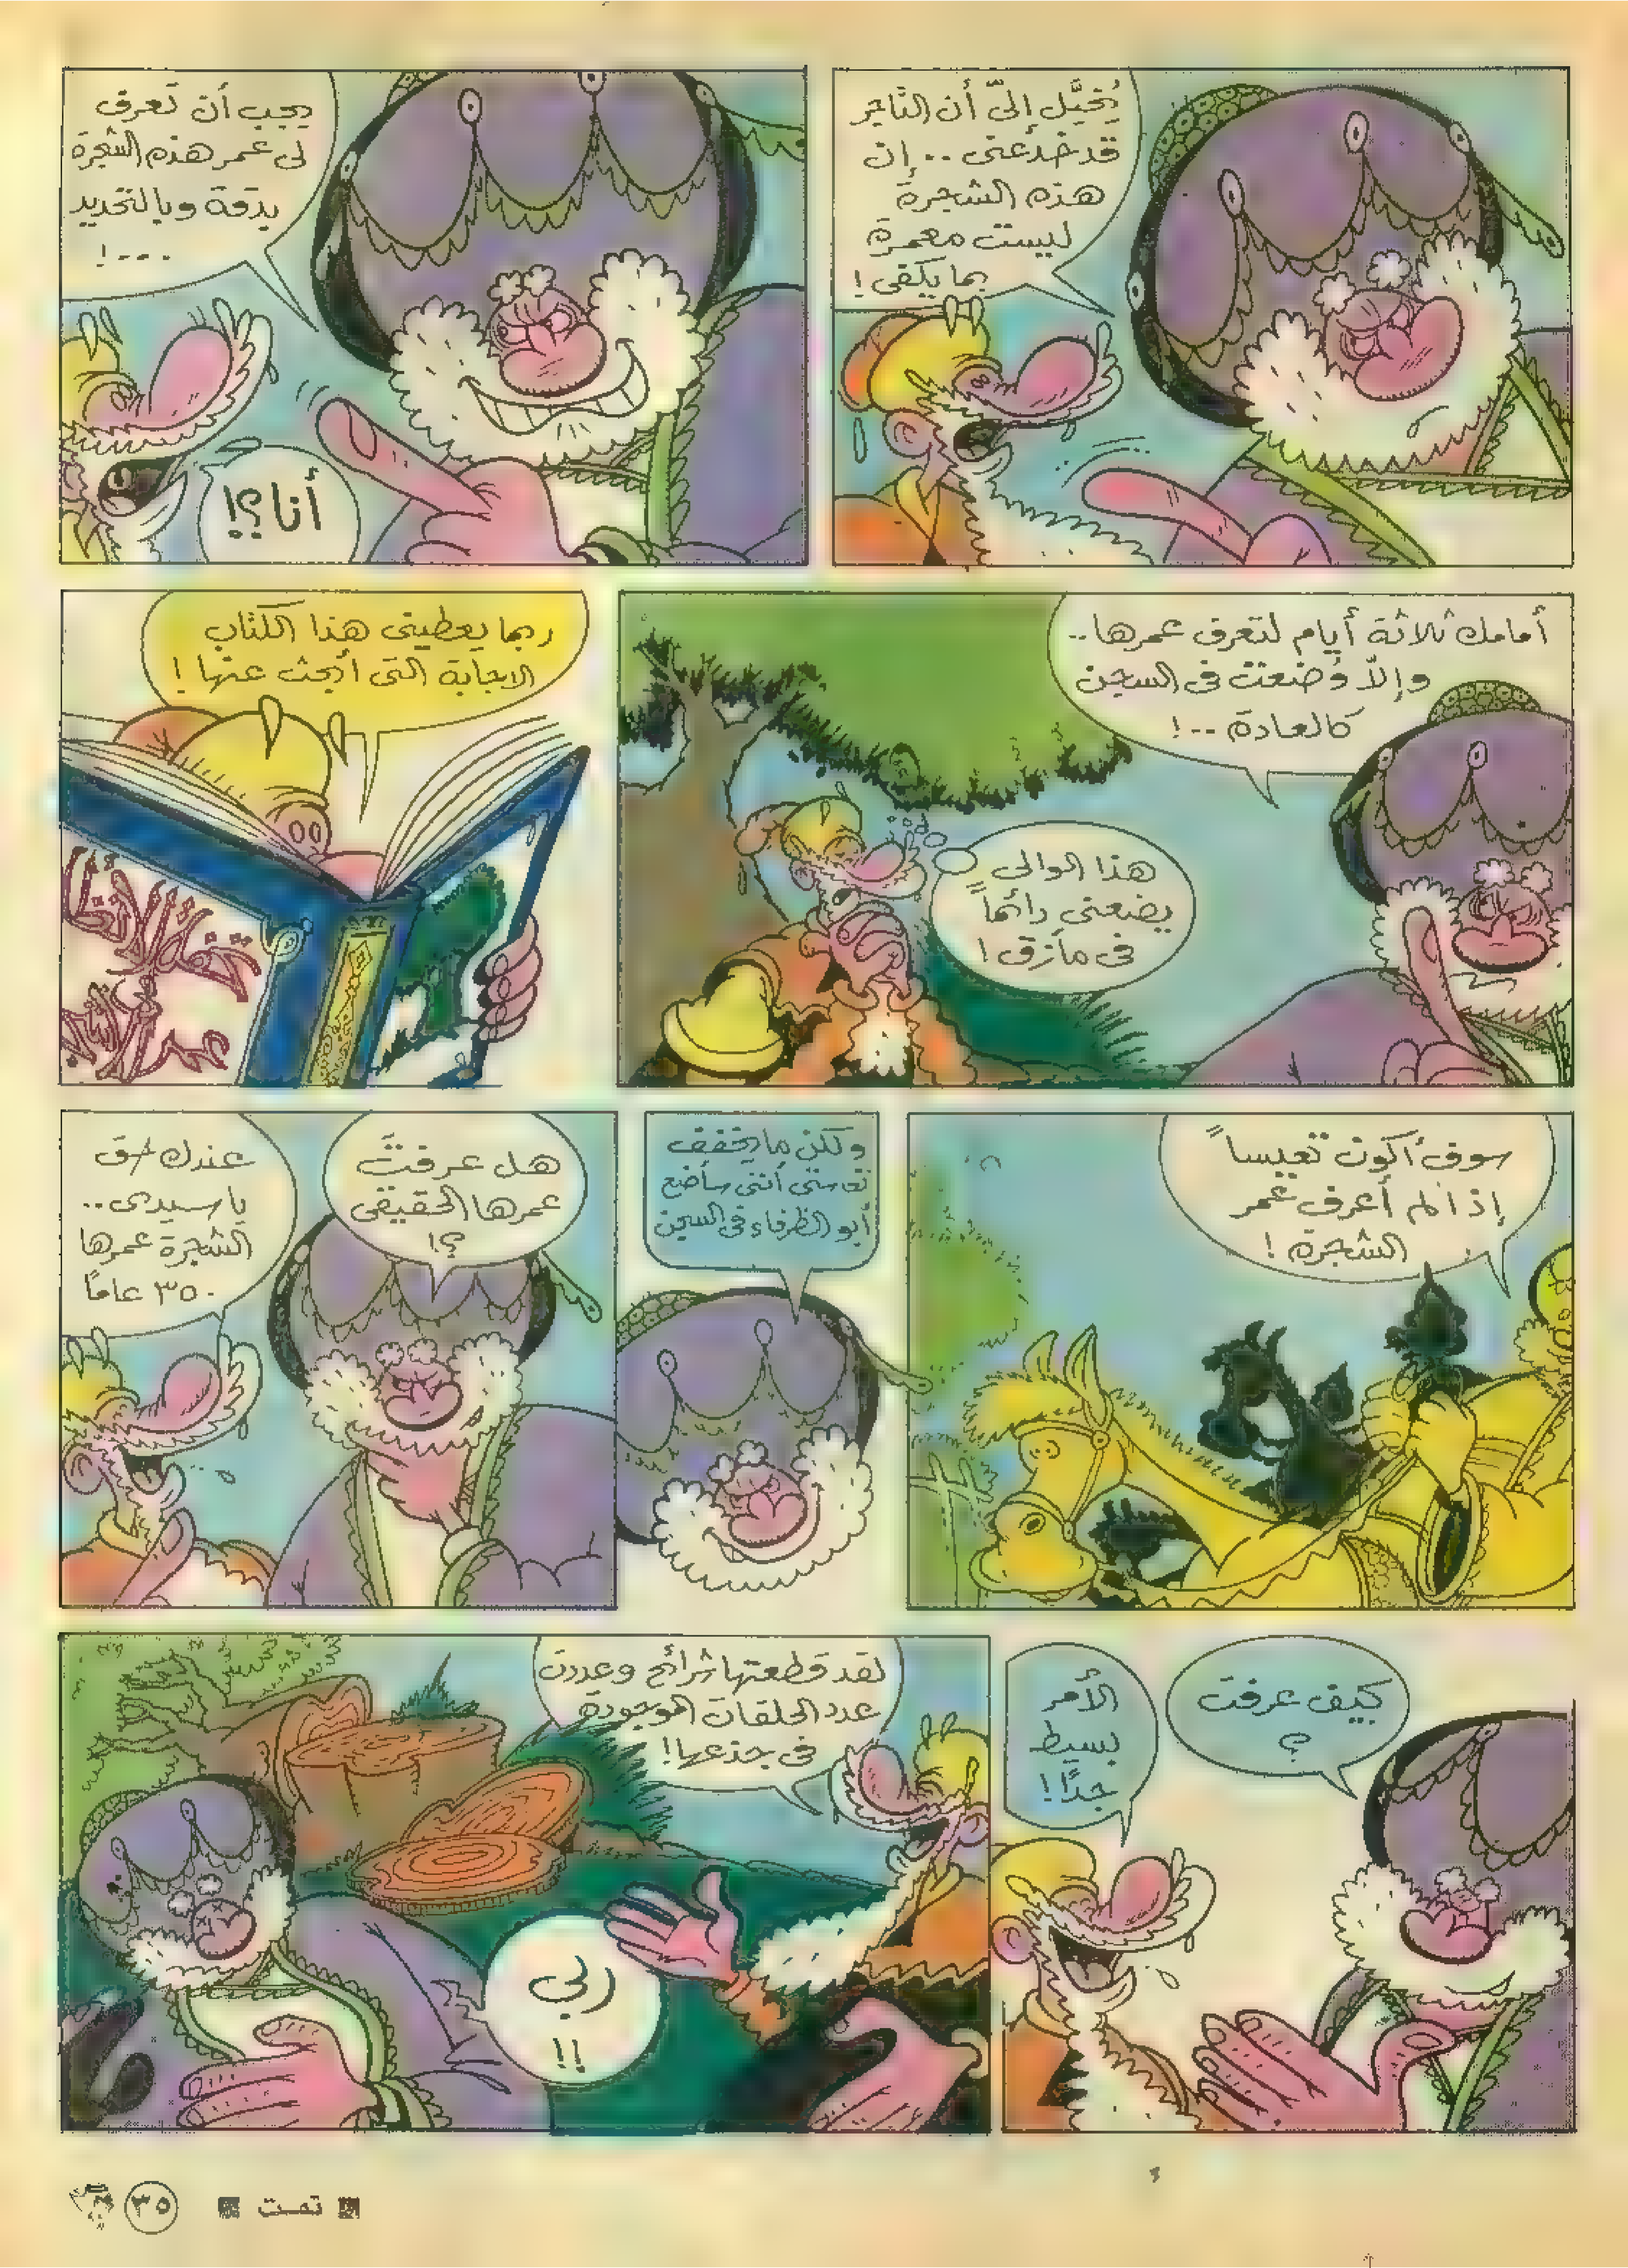 يُخيَّل إليّ أن التاجر
قد خدعنى .. إن
هذه الشجرة
ليست معمرة
بما يكفى !
يجب أن تعرف
لى عمر هذه الشجرة
بدقة وبالتحديد
...!
أنا؟!
أمامك ثلاثة أيام لتعرف عمرها..
وإلاّ وُضعت فى السجن
كالعادة ..!
هذا الوالى
يضعنى دائماً
فى مأزق !
ربما يعطينى هذا الكتاب
الاجابة التى أبحث عنها !
سوف أكون تعيساً
إذا لم أعرف عمر
الشجرة !
ولكن ما يخفف
تعاستى أننى سأضع
أبو الظرفاء فى السجن
هل عرفتَ
عمرها الحقيقى
؟!
عندك حق
يا سيدى..
الشجرة عمرها
٣٥٠ عاماً
كيف عرفت
؟
الأمر
بسيط
جدًا !
لقد قطعتها شرائح وعددت
عدد الحلقات الموجودة
فى جذعها !
ربى
!!
تمت
٣٥